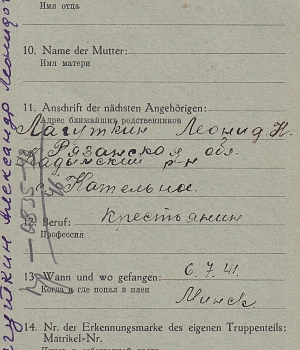 Имя отца
10. Name der Mutter:
Имя матери
11. Anschrift der nächsten Angehörigen:
Адрес ближайших родственников
Лагуткин Леонид Н.
Рязанская обл.
Кадымский р-н
с. Кательное.
Beruf: Крестьянин
Профессия
13. Wann und wo gefangen: 6.7.41.
Когда и где попал в плен
Минск
14. Nr. der Erkennungsmarke des eigenen Truppenteils:
Matrikel-Nr.
Лагуткин Александр Леонидо